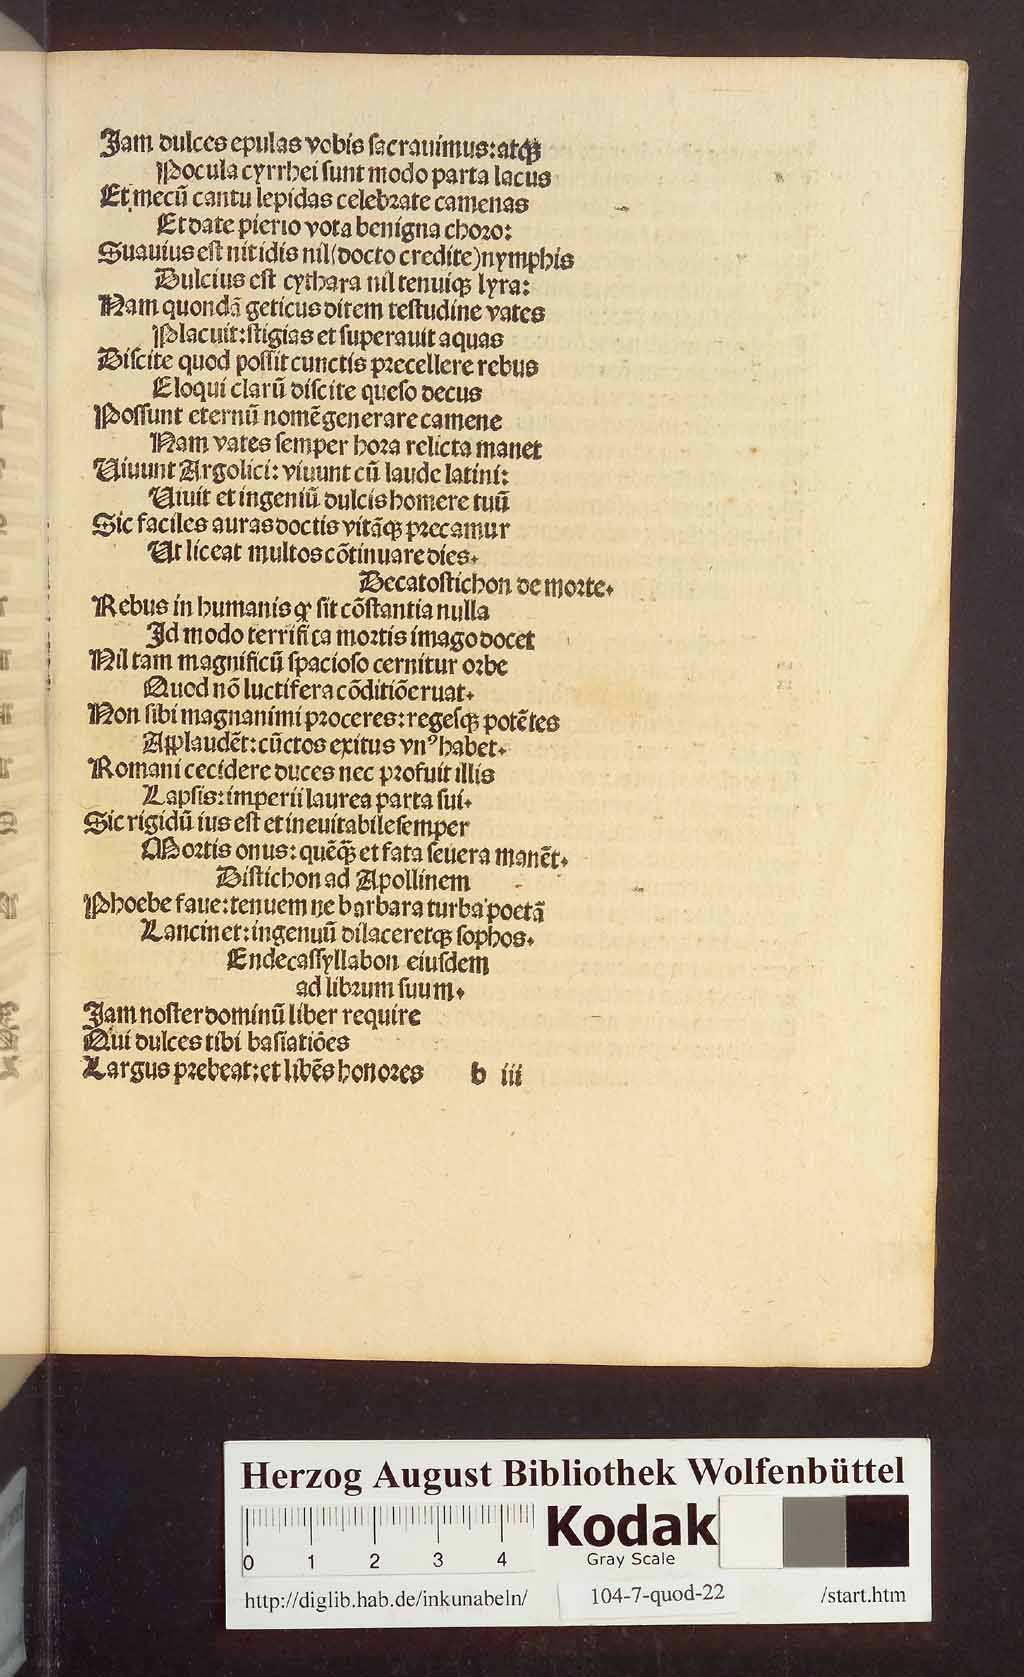 Jam dulces epulas vobis sacrauimus: atqꝫ
Pocula cyrrhei sunt modo parta lacus
Et mecū cantu lepidas celebrate camenas
Et date pierio vota benigna choro:
Suauius est nitidis nil (docto credite) nymphis
Dulcius est cythara nil tenuiqꝫ lyra:
Nam quondā geticus ditem testudine vates
Placuit: stigias et superauit aquas
Discite quod possit cunctis precellere rebus
Eloqui clarū discite queso decus
Possunt eternū nomē generare camene
Nam vates semper hora relicta manet
Viuunt Argolici: viuunt cū laude latini:
Viuit et ingeniū dulcis homere tuū
Sic faciles auras doctis vitāqꝫ precamur
Ut liceat multos cōtinuare dies.
Decatostichon de morte.
Rebus in humanis ꝙ sit cōstantia nulla
Id modo terrifica mortis imago docet
Nil tam magnificū spacioso cernitur orbe
Quod nō luctifera cōditiōe ruat.
Non sibi magnanimi proceres: regesqꝫ potētes
Applaudēt: cūctos exitus vnꝰ habet.
Romani cecidere duces nec profuit illis
Lapsis: imperii laurea parta sui.
Sic rigidū ius est et ineuitabile semper
Mortis onus: quēqꝫ et fata seuera manēt.
Distichon ad Apollinem
Phoebe faue: tenuem ne barbara turba poetā
Lancinet: ingenuū dilaceretqꝫ sophos.
Endecassyllabon eiusdem
ad librum suum.
Jam noster dominū liber require
Qui dulces tibi basiatiōes
Largus prebeat: et libēs honores b iii
Herzog August Bibliothek Wolfenbüttel
0 1 2 3 4
Kodak
Gray Scale
http://diglib.hab.de/inkunabeln/ 104-7-quod-22 /start.htm